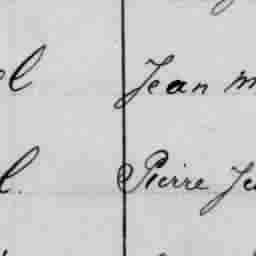 l Jean m
l. Pierre Je